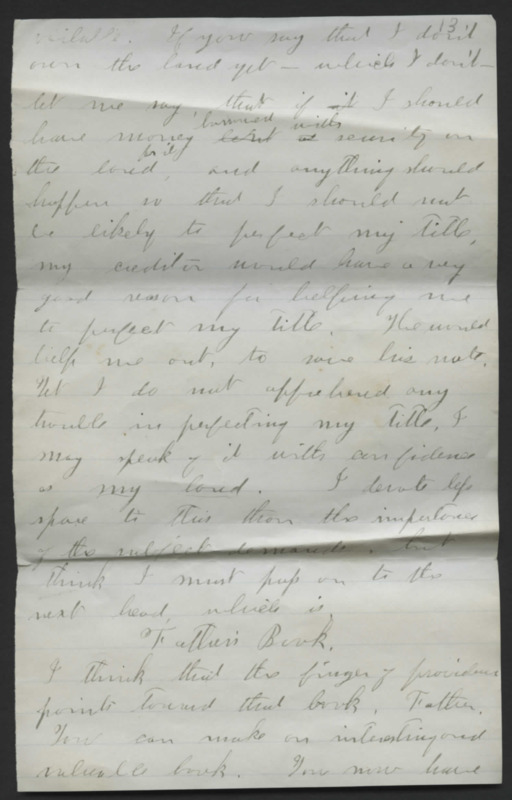 13
If you say that I don't
own the land yet — which I don't —
let me say that if it I should
have money lent borrowed with security on
the land, and anything should
happen so that I should not
be likely to perfect my title,
my creditor would have a very
good reason for helping me
to perfect my title. He would
help me out, to save his note.
Yet I do not apprehend any
trouble in perfecting my title. I
may speak of it with confidence
as my land. I devote less
space to this than the importance
of the subject demands, but
think I must pass on to the
next head, which is
Father's Book.
I think that the finger of providence
points toward that book, Father.
You can make an interesting and
valuable book. You now have